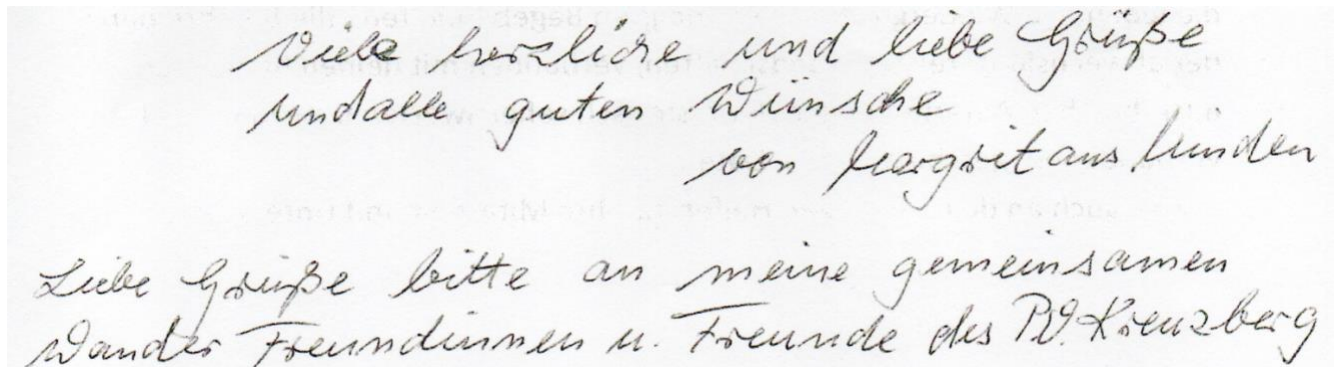 Viele herzliche und liebe Grüße
und alle guten Wünsche
von Margrit aus Munden
Liebe Grüße bitte an meine gemeinsamen
Wander Freundinnen u. Freunde des PV. Kreuzberg